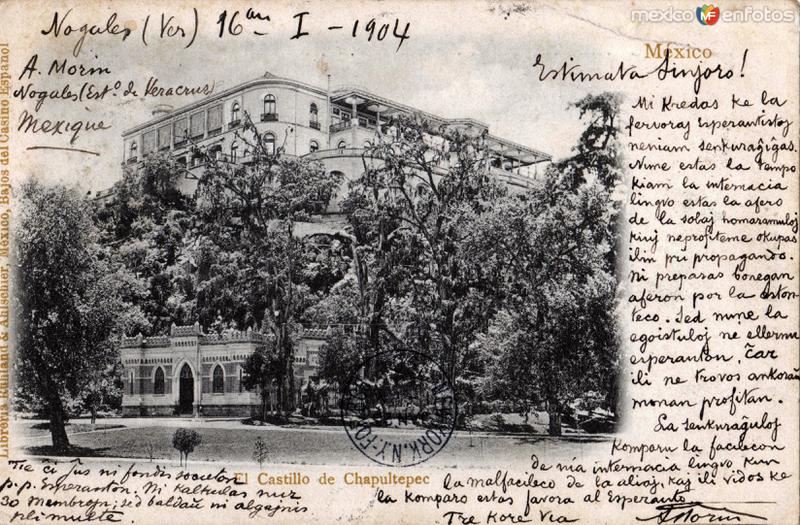 mexicoenfotos
Nogales (Ver) 16an I - 1904
México
A. Morin
Nogales (Esto. de Veracruz)
Mexique
Estimata Sinjoro!
Mi kredas ke la
fervoraj Esperantistoj
neniam senkuraĝiĝas.
Nune estas la tempo
kiam la internacia
lingvo estas la afero
de la solaj homaramuloj
kiuj neprofiteme okupas
ilin pri propagando.
Ni preparas bonegan
aferon por la eston-
teco. Sed nune la
egoistuloj ne ellernu
esperanton, ĉar
ili ne trovos ankoraŭ
monan profiton.
La senkuraĝuloj
Komparu la facilecon
de nia internacia lingvo kun
la malfacileco de la aliaj, kaj ili vidos ke
la komparo estas favora al Esperanto
Tre Kore Via
A Morin
Tie ĉi ĵus ni fondis societon
p.p. Esperanton. Ni kalkulas nur
30 membrojn; sed baldaŭ ni algajnis
pli multe.
El Castillo de Chapultepec
NEW YORK, N.Y.
Libreria Ruhland & Ahlschier, México, Bajos del Casino Español